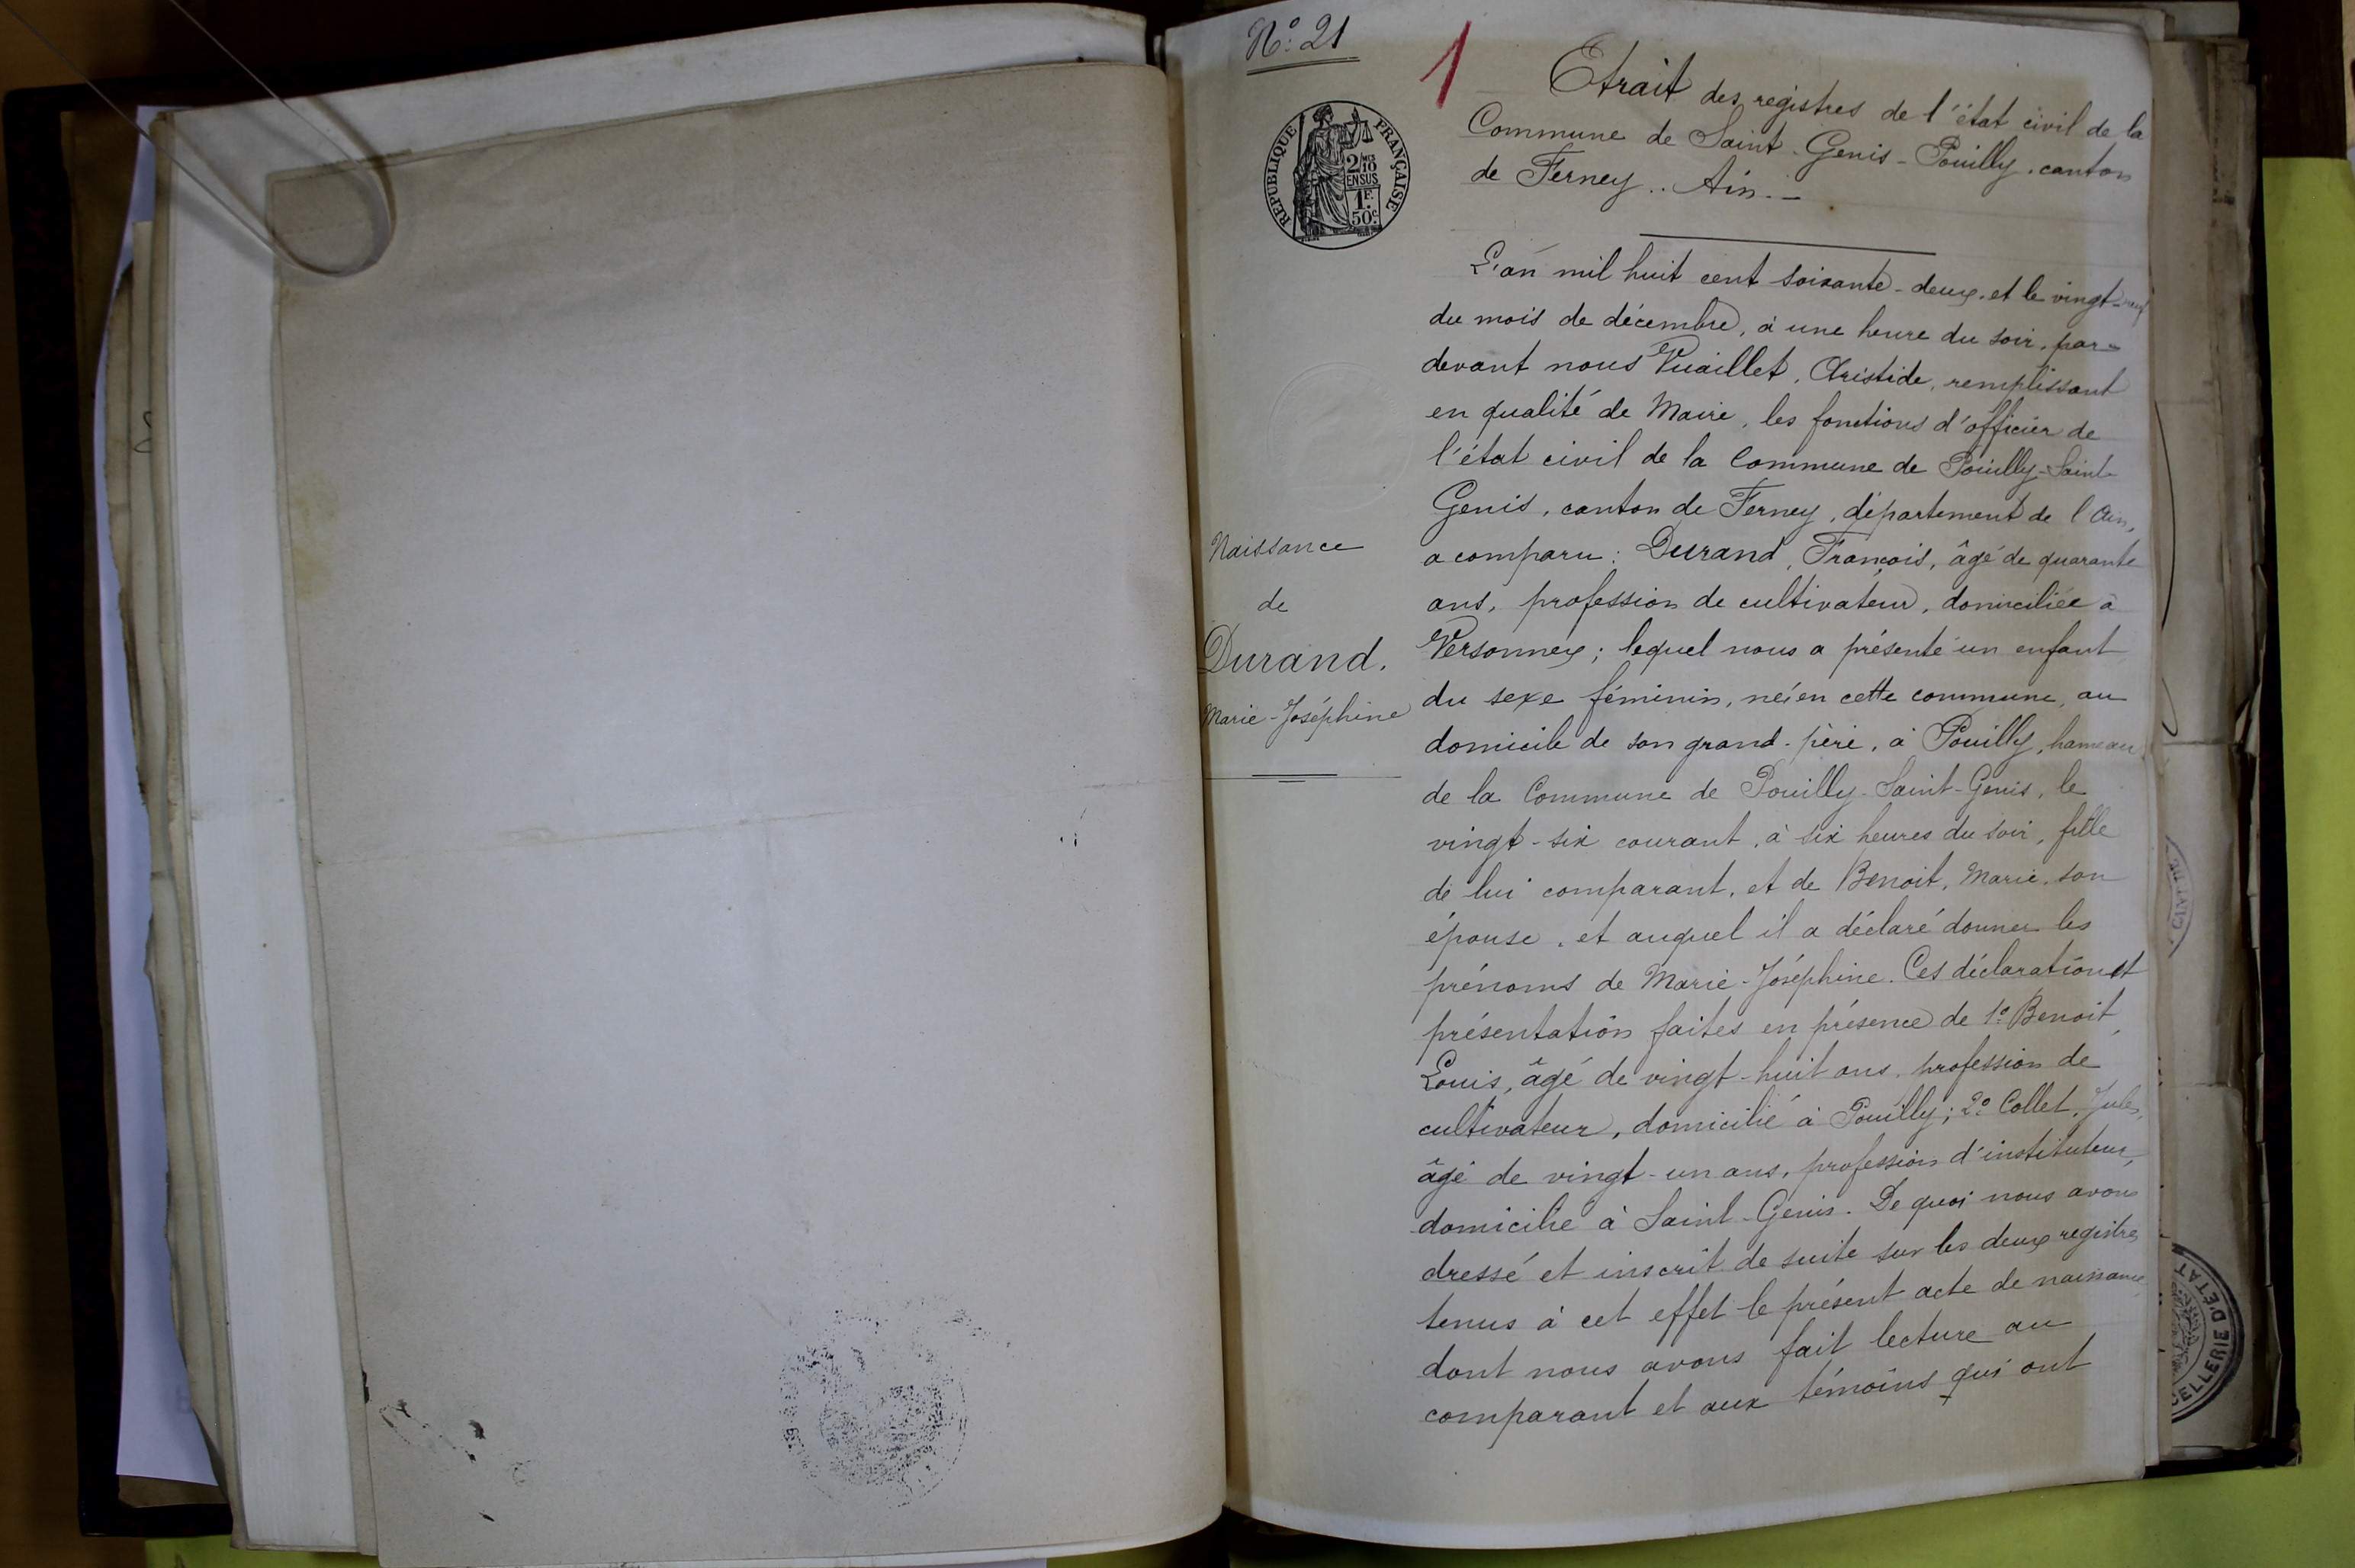 Nº 21
1
RÉPUBLIQUE FRANÇAISE
2/10
EN SUS
1F.
50c.
Etrait des registres de l'état civil de la
Commune de Saint-Genis-Pouilly, canton
de Ferney.. Ain.-
L'an mil huit cent soixante-deux, et le vingt-neuf
du mois de décembre, à une heure du soir, par-
devant nous Vuaillet, Aristide, remplissant
en qualité de Maire, les fonctions d'officier de
l'état civil de la Commune de Pouilly-Saint-
Genis, canton de Ferney, département de l'Ain,
a comparu : Durand, François, âgé de quarante
ans, profession de cultivateur, domiciliée à
Versonnex ; lequel nous a présenté un enfant
du sexe féminin, né en cette commune, au
domicile de son grand-père, à Pouilly, hameau
de la Commune de Pouilly-Saint-Genis, le
vingt-six courant, à six heures du soir, fille
de lui comparant, et de Benoit, Marie, son
épouse, et auquel il a déclaré donner les
prénoms de Marie-Joséphine. Ces déclaration et
présentation faites en présence de 1º Benoit,
Louis, âgé de vingt-huit ans, profession de
cultivateur, domicilié à Pouilly ; 2º Collet, Jules,
âgé de vingt-un ans, profession d'instituteur,
domicilié à Saint-Genis. De quoi nous avons
dressé et inscrit de suite sur les deux registres
tenus à cet effet le présent acte de naissance
dont nous avons fait lecture au
comparant et aux témoins qui ont
Naissance
de
Durand.
Marie-Joséphine
CELLERIE D'ÉTAT